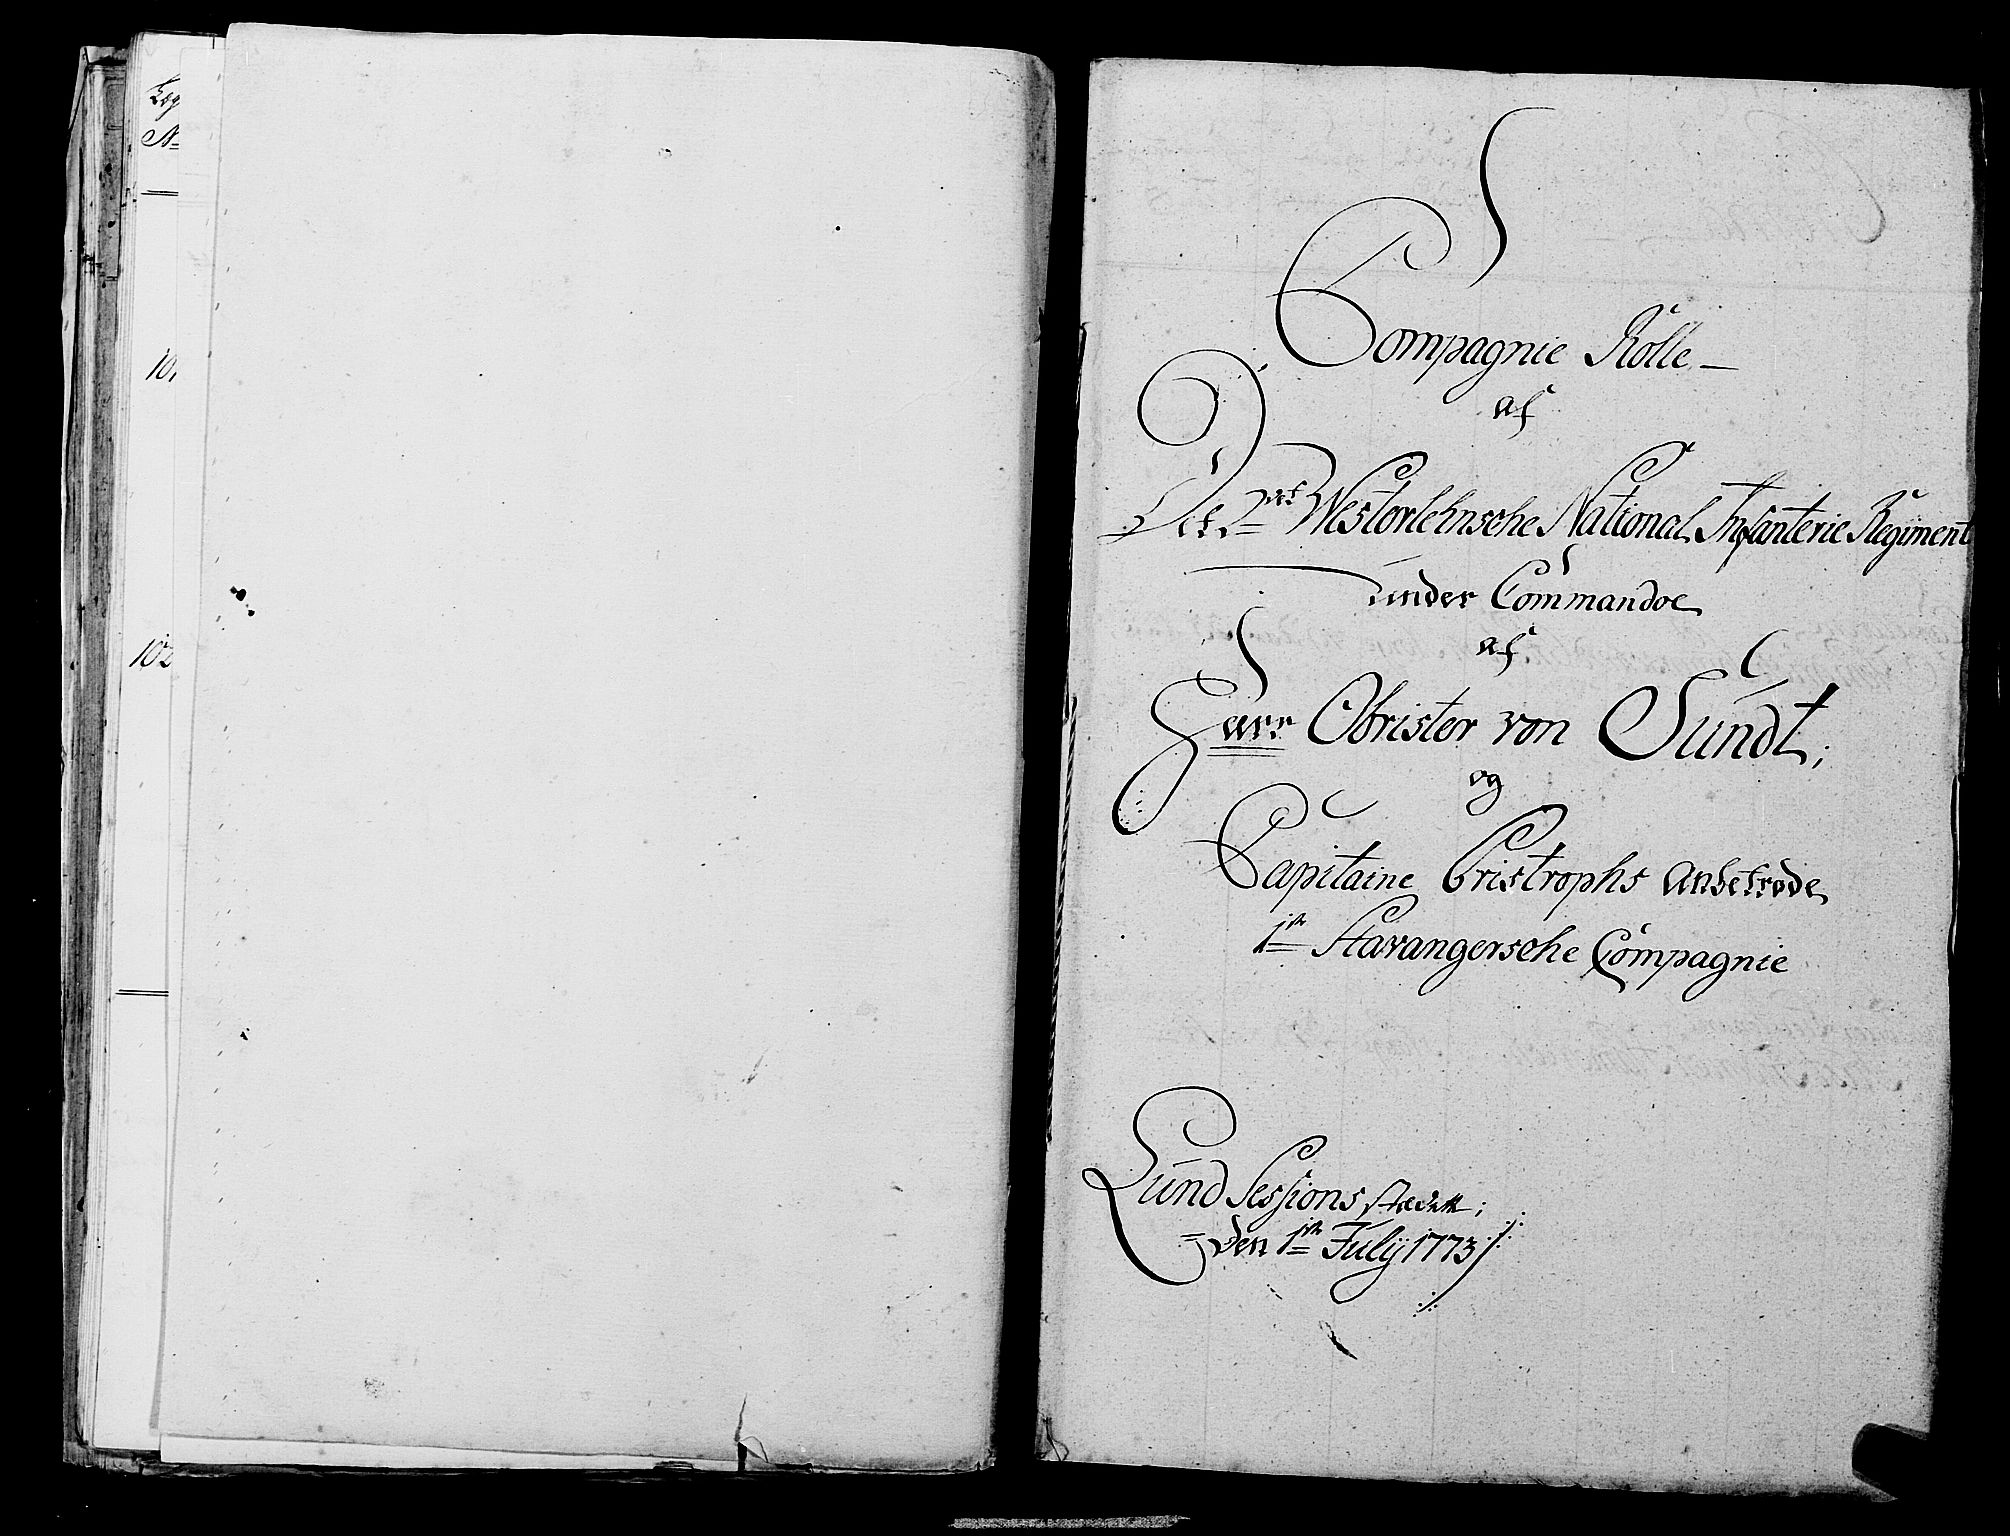 Læg
No
101
102
Compagnie Rolle
af
Det 2det Westerlehnsche National Infanterie Regiment
under Commandoe
af
Herr Obrister von Sundt,
og
Capitaine Cristrophs anbetrøde
1ste Stavangersche Compagnie
Lund Sessions stædet;
den 1ste July 1773